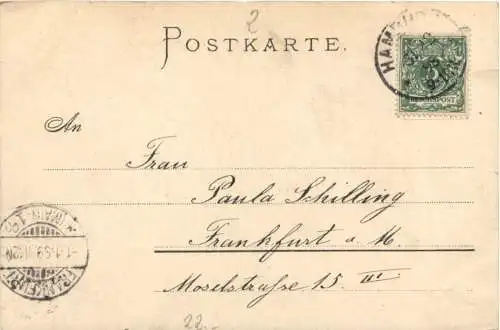 2
POSTKARTE.
HAM
5
REICHSPOST
An
Frau
Paula Schilling
Frankfurt a. M.
Moselstraße 15 III
22.-